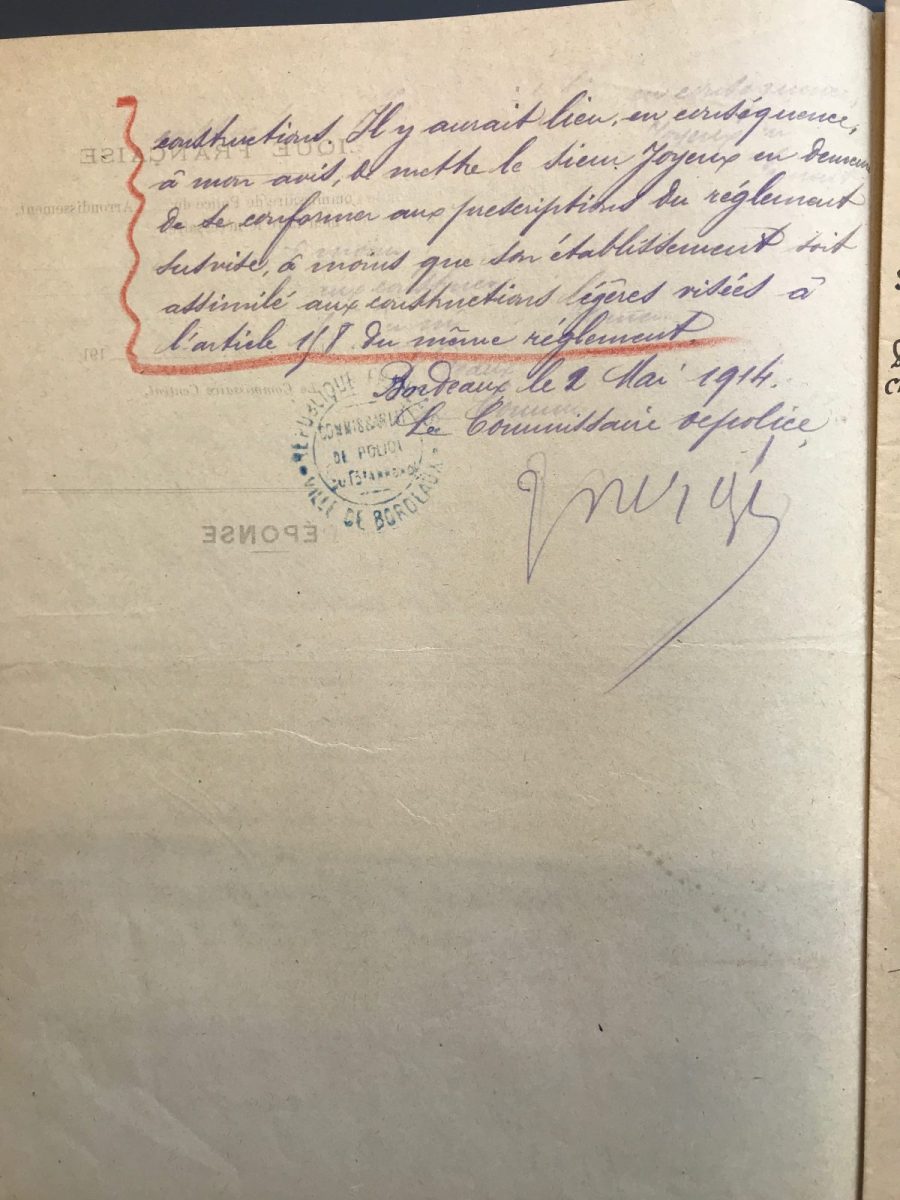 constructions. Il y aurait lieu, en conséquence,
à mon avis, de mettre le sieur Joyeux en demeure
de se conformer aux prescriptions du réglement
susvisé, à moins que son établissement soit
assimilé aux constructions légères visées à
l'article 158 du même réglement.
Bordeaux le 2 Mai 1914.
Le Commissaire de police,
RÉPUBLIQUE FRANÇAISE
COMMISSARIAT
DE POLICE
DU 13e ARRONDt
VILLE DE BORDEAUX
IQUE FRANÇAISE
Commissaire de Police du
Arrondissement,
191
Le Commissaire Central,
RÉPONSE